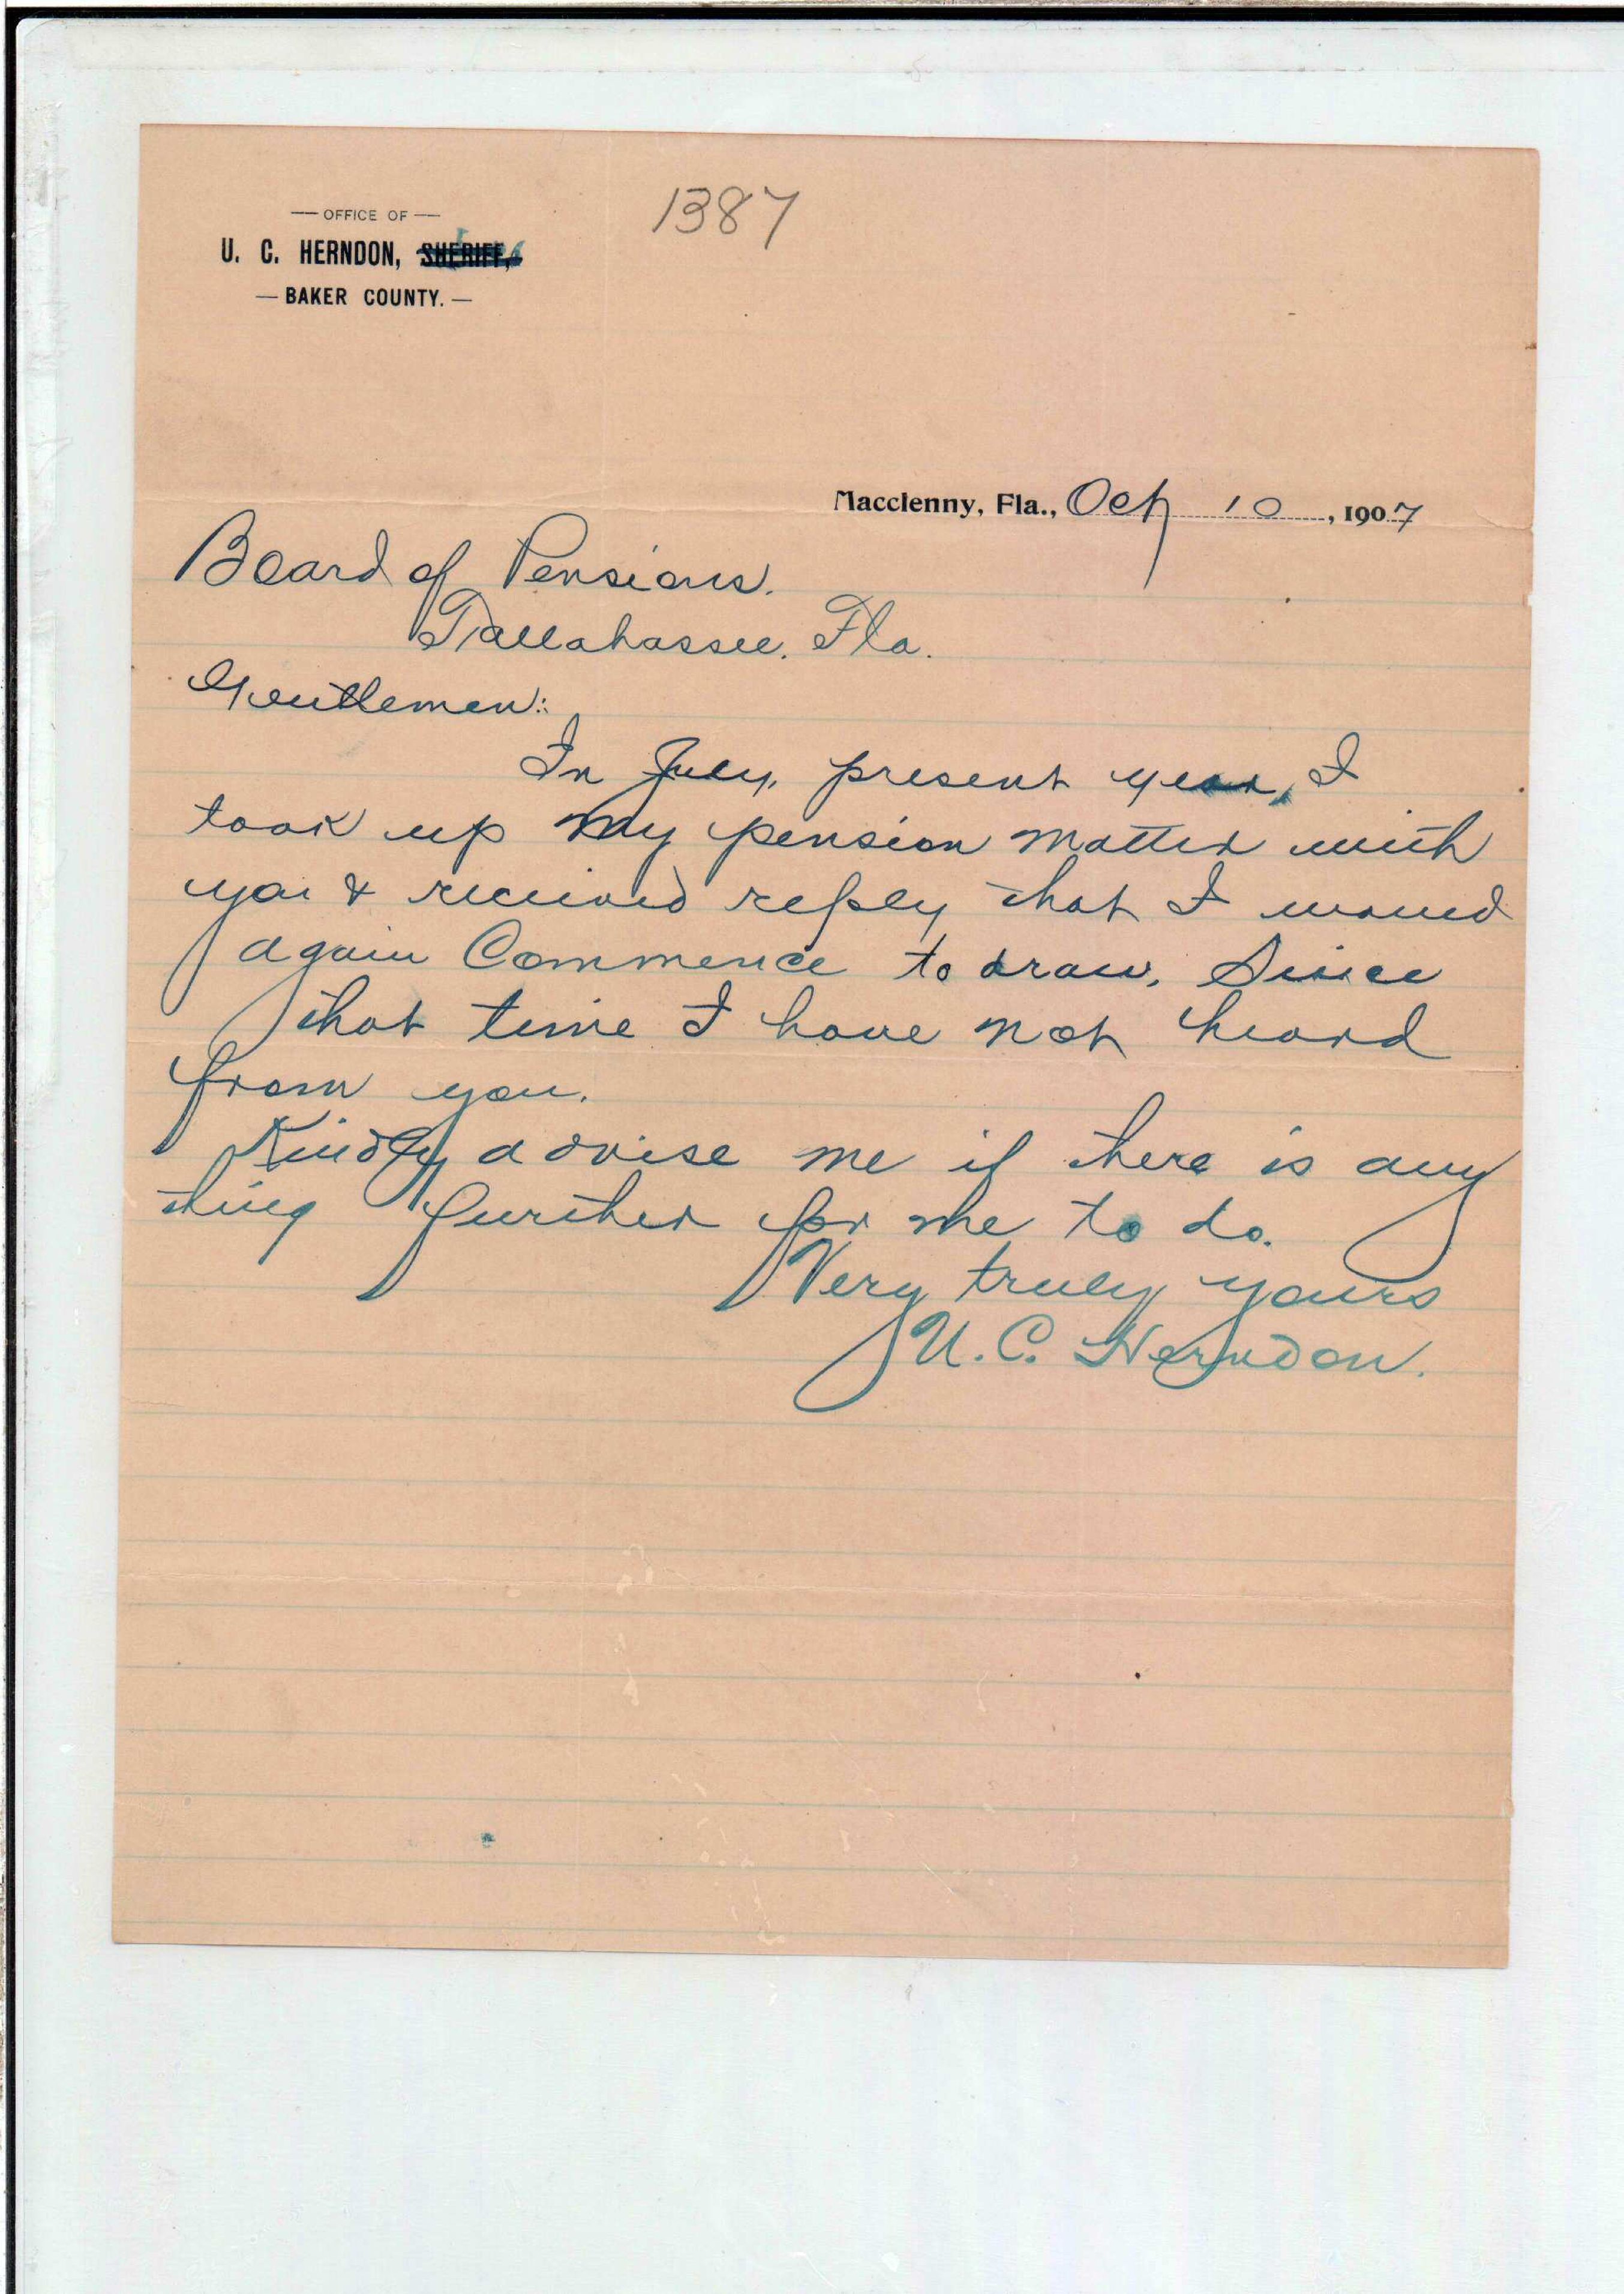 1387
— OFFICE OF —
U. C. HERNDON, SHERIFF,
— BAKER COUNTY. —
Macclenny, Fla., Oct 10, 1907
Board of Pensions.
Tallahassee. Fla.
Gentlemen:
In July, present year, I
took up my pension matter with
you & received reply that I would
again Commence to draw. Since
that time I have not heard
from you.
Kindly advise me if there is any
thing further for me to do.
Very truly yours
U. C. Herndon.